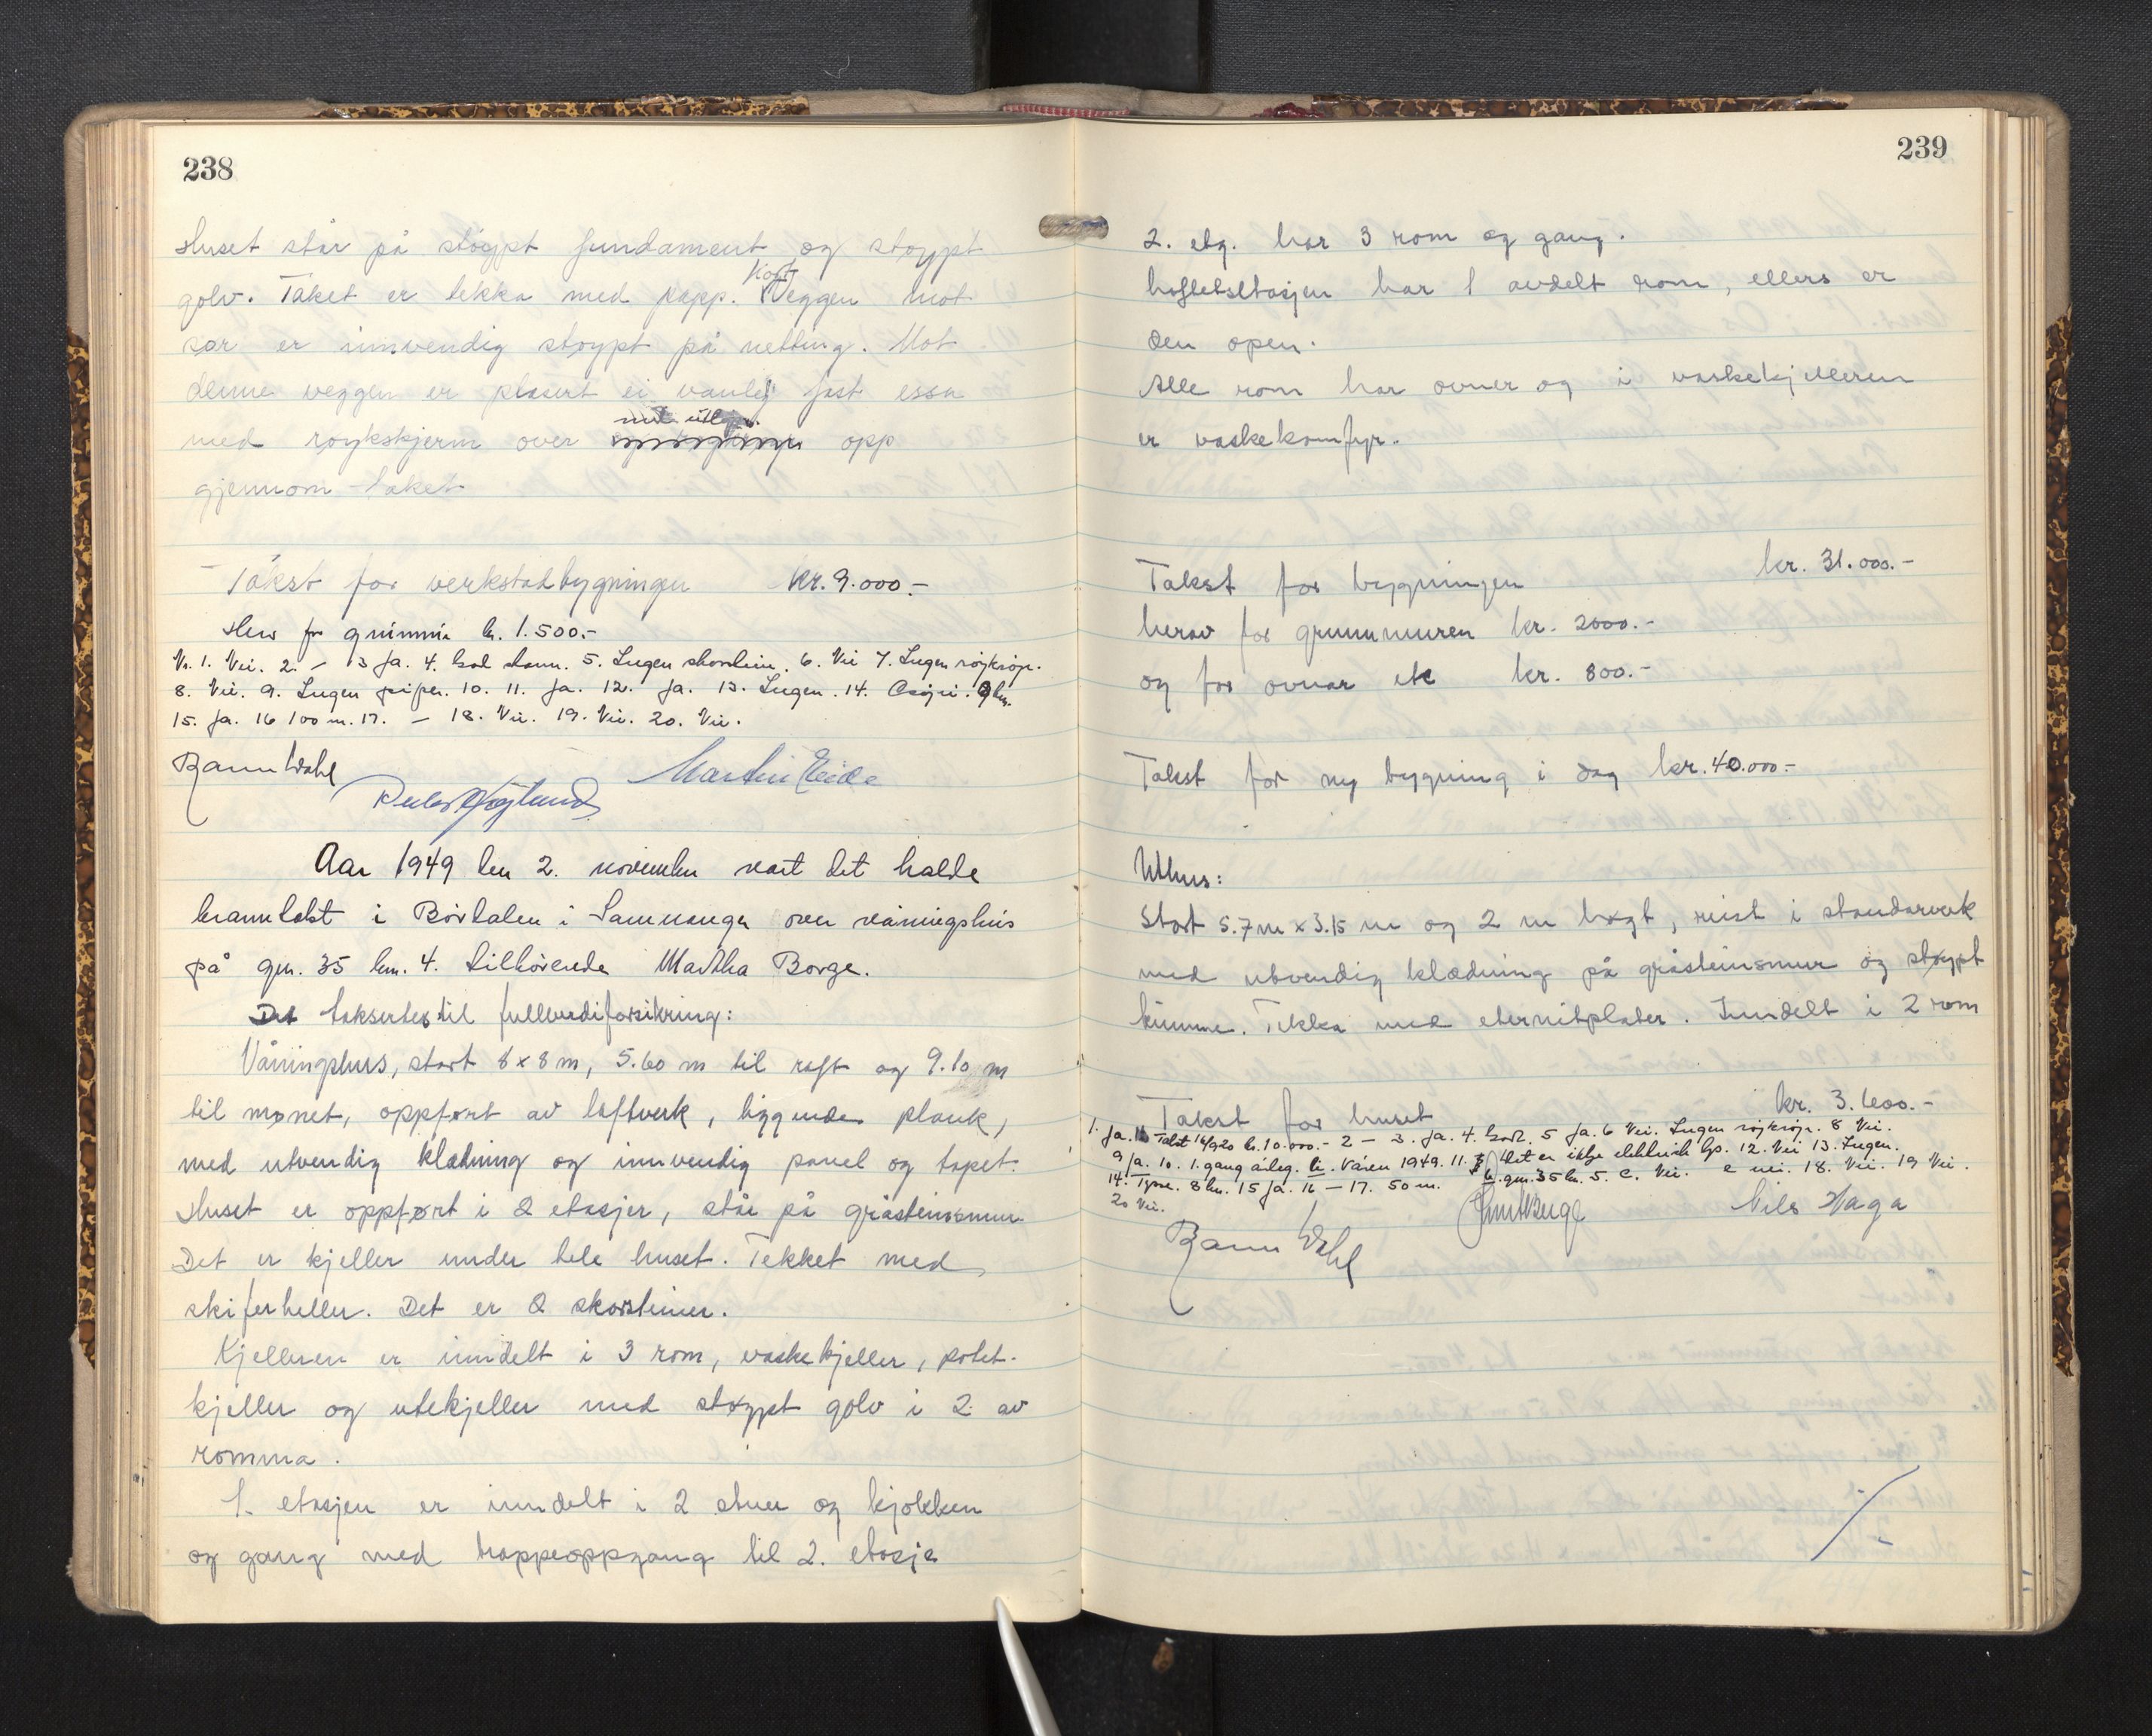 238
Huset står på støypt fundament og støypt
golv. Taket er tekka med papp. Veggen mot
sør er innvendig støypt på netting. Mot
denne veggen er plasert ei vanleg fast essa
med røykskjerm over opp
gjennom taket
Takst for verkstadbygningen kr. 9.000.-
Herav for grunnmur kr. 1.500.-
Nr. 1. Nei. 2. - 3 Ja. 4. God stann. 5. Ingen skorstein. 6. Nei 7. Ingen røjkrøjr.
8. Nei. 9. Ingen piper. 10. 11. Ja. 12. Ja. 13. Ingen. 14. Osøjri. 9 km.
15. Ja. 16 100 m. 17. - 18. Nei. 19. Nei. 20. Nei.
Martin Eide
Aar 1949 den 2. november vart det halde
branntakst i Børdalen i Samnanger over våningshus
på gnr. 35 bnr. 4. tilhørende Martha Borge.
Det taksertes til fullverdiforsikring:
Våningshus, stort 8 x 8 m, 5.60 m til raft og 9.10 m
til mønet, oppført av laftverk, liggende plank,
med utvendig klædning og innvendig panel og tapet.
Huset er oppført i 2 etasjer, står på gråsteinsmur
Det er kjeller under hele huset. Tekket med
skiferheller. Det er 2 skorsteiner.
Kjelleren er inndelt i 3 rom, vaskekjeller, potet-
kjeller og utekjeller med støypt golv i 2 av
romma.
1. etasjen er inndelt i 2 stuer og kjøkken
og gang med trappeoppgang til 2. etasje
239
2. etg. har 3 rom og gang.
loftetsetasjen har 1 avdelt rom, ellers er
den open.
Alle rom har ovner og i vaskekjelleren
er vaskekomfyr.
Takst for bygningen kr. 31.000.-
herav for grunnmuren kr. 2000.-
og for ovnar etc kr. 800.-
Takst for ny bygning i dag kr. 40.000.-
Uthus:
Stort 5.7 m x 3.15 m og 2 m høgt, reist i standarverk
med utvendig klædning på gråsteinsmur og støypt
kumme. Tekka med eternitplater. Inndelt i 2 rom
Takst for huset kr. 3.600.-
1. Ja. Takst 16/9 20 kr. 10.000.- 2 - 3. Ja. 4. God. 5 Ja. 6 Nei. Ingen røjkrøjr. 8 Nei.
9 Ja. 10. 1. gang årleg. Våren 1949. 11. Det er ikkje elektrisk lys. 12. Nei 13. Ingen.
14. Tysse. 8 km. 15 Ja. 16 - 17. 50 m. gnr. 35 bnr. 5. c. Nei. e nei. 18. Nei. 19 Nei.
20 Nei.
Nils Haga